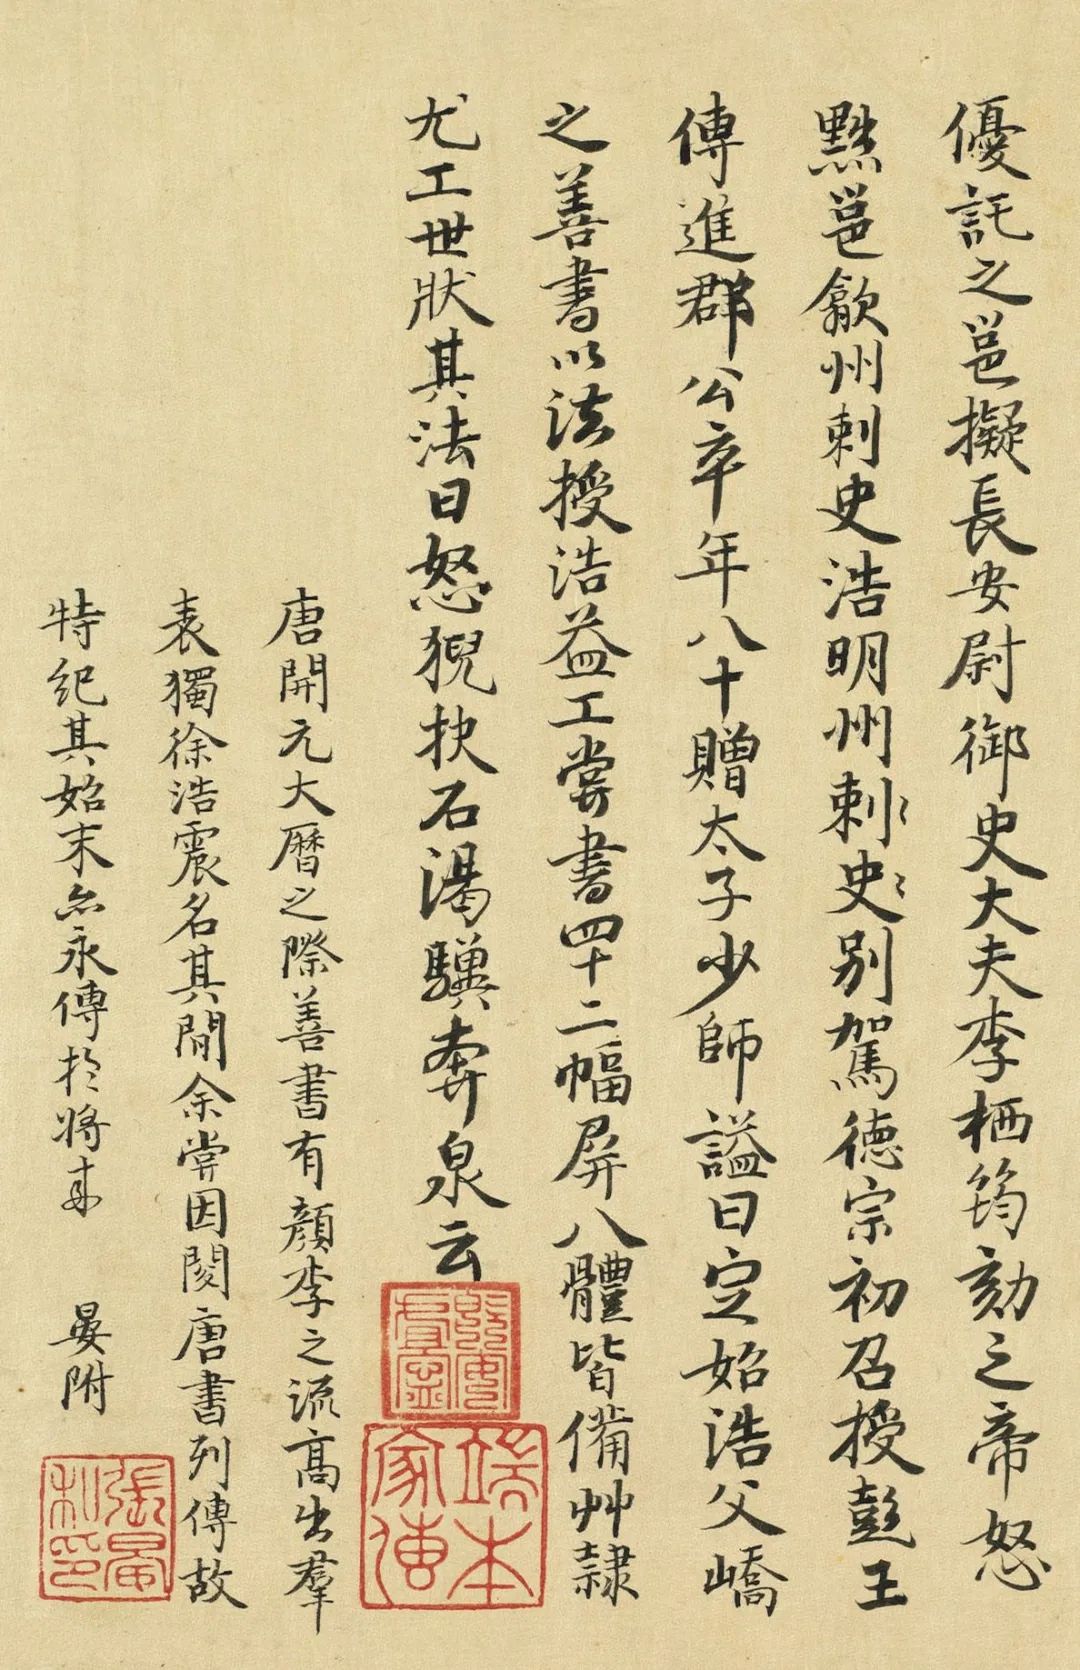 優託之邕擬長安尉御史大夫李栖筠劾之帝怒
黜邕歙州刺史浩明州刺史別駕德宗初召授彭王
傅進郡公卒年八十贈太子少師謚曰定始浩父嶠
之善書以法授浩益工嘗書四十二幅屏八體皆備艸隷
尤工世狀其法曰怒猊抉石渴驥奔泉云
唐開元大曆之際善書有顏李之流高出羣
表獨徐浩震名其間余嘗因閱唐書列傳故
特紀其始末亦永傳於將來 晏附
端本家傳
張晏私印